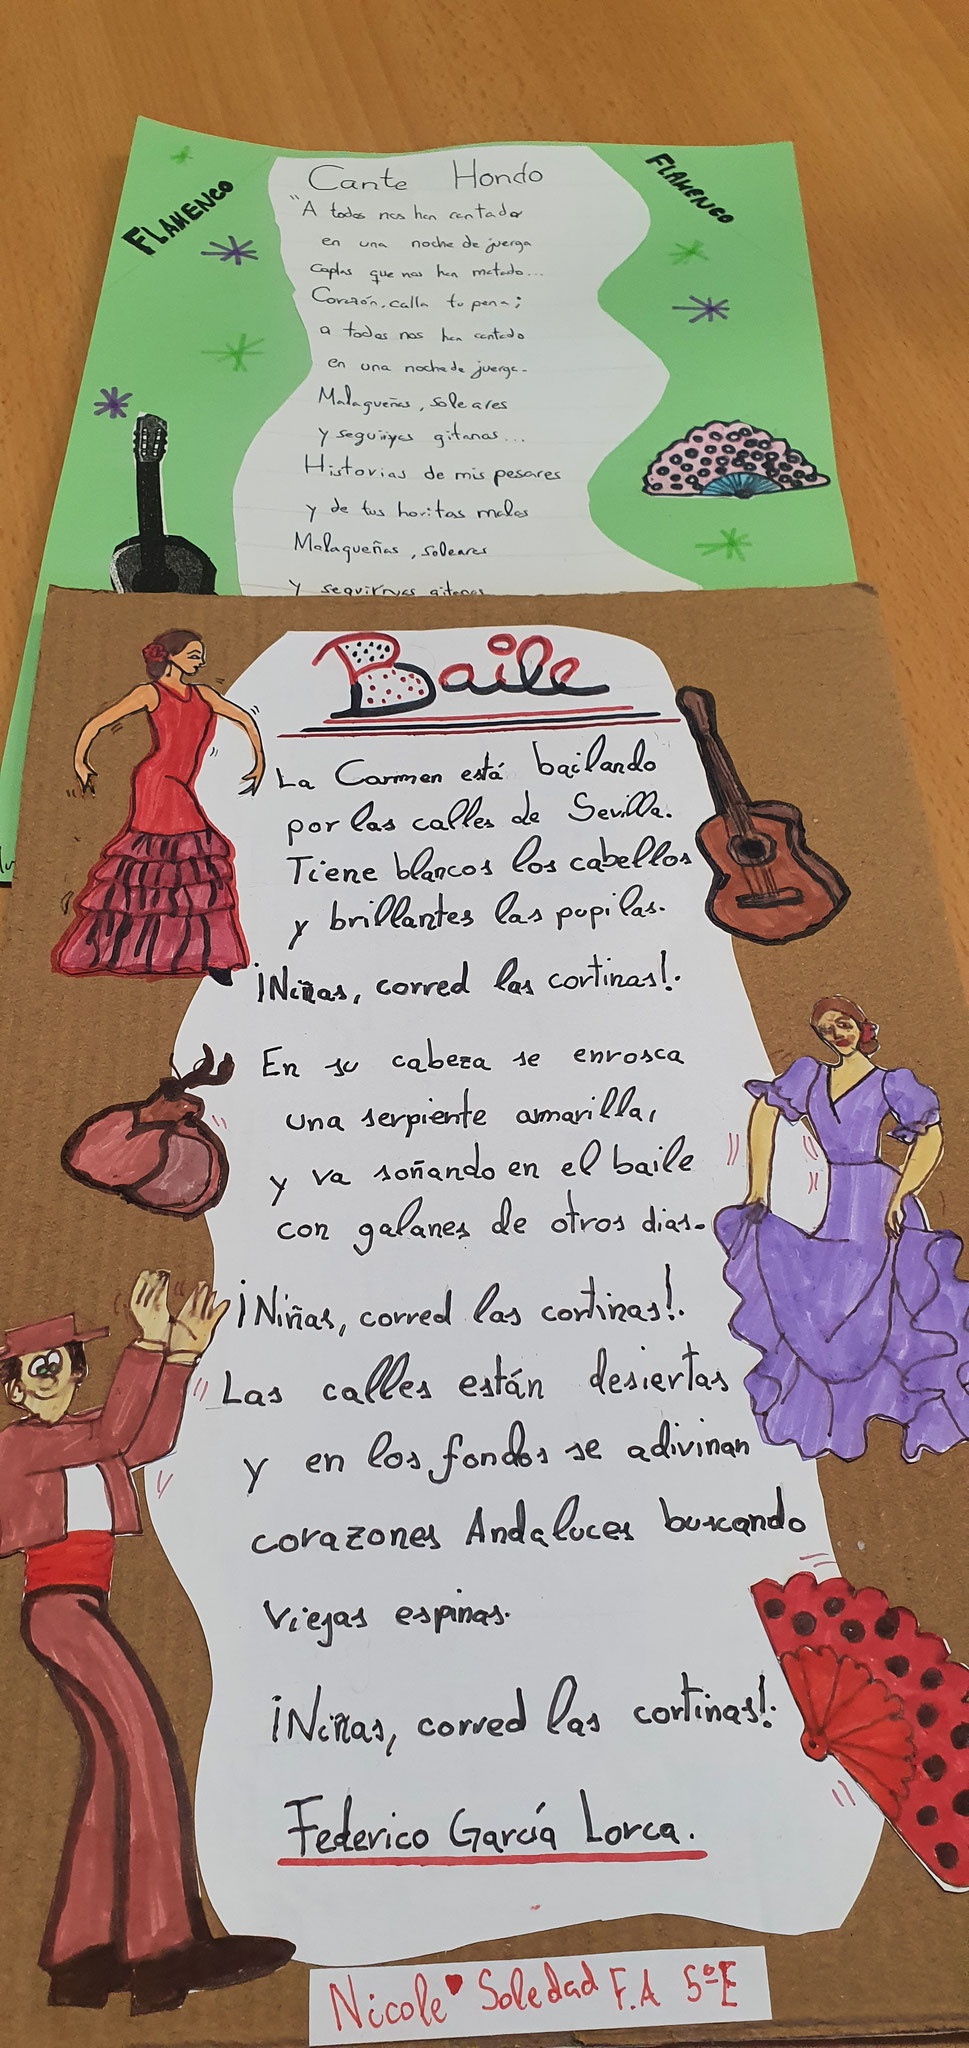 FLAMENCO
FLAMENCO
Cante Hondo
"A todos nos han cantado
en una noche de juerga
coplas que nos han matado...
Corazón, calla tu pena;
a todos nos han cantado
en una noche de juerga.
Malagueñas, soleares
y seguiriyas gitanas...
Historias de mis pesares
y de tus horitas malas
Malagueñas, soleares
y seguiriyas gitanas
Baile
La Carmen está bailando
por las calles de Sevilla.
Tiene blancos los cabellos
y brillantes las pupilas.
¡Niñas, corred las cortinas!.
En su cabeza se enrosca
una serpiente amarilla,
y va soñando en el baile
con galanes de otros dias.
¡Niñas, corred las cortinas!.
Las calles están desiertas
y en los fondos se adivinan
corazones Andaluces buscando
viejas espinas.
¡Niñas, corred las cortinas!.
Federico García Lorca.
Nicole ♥ Soledad F.A 5ºE